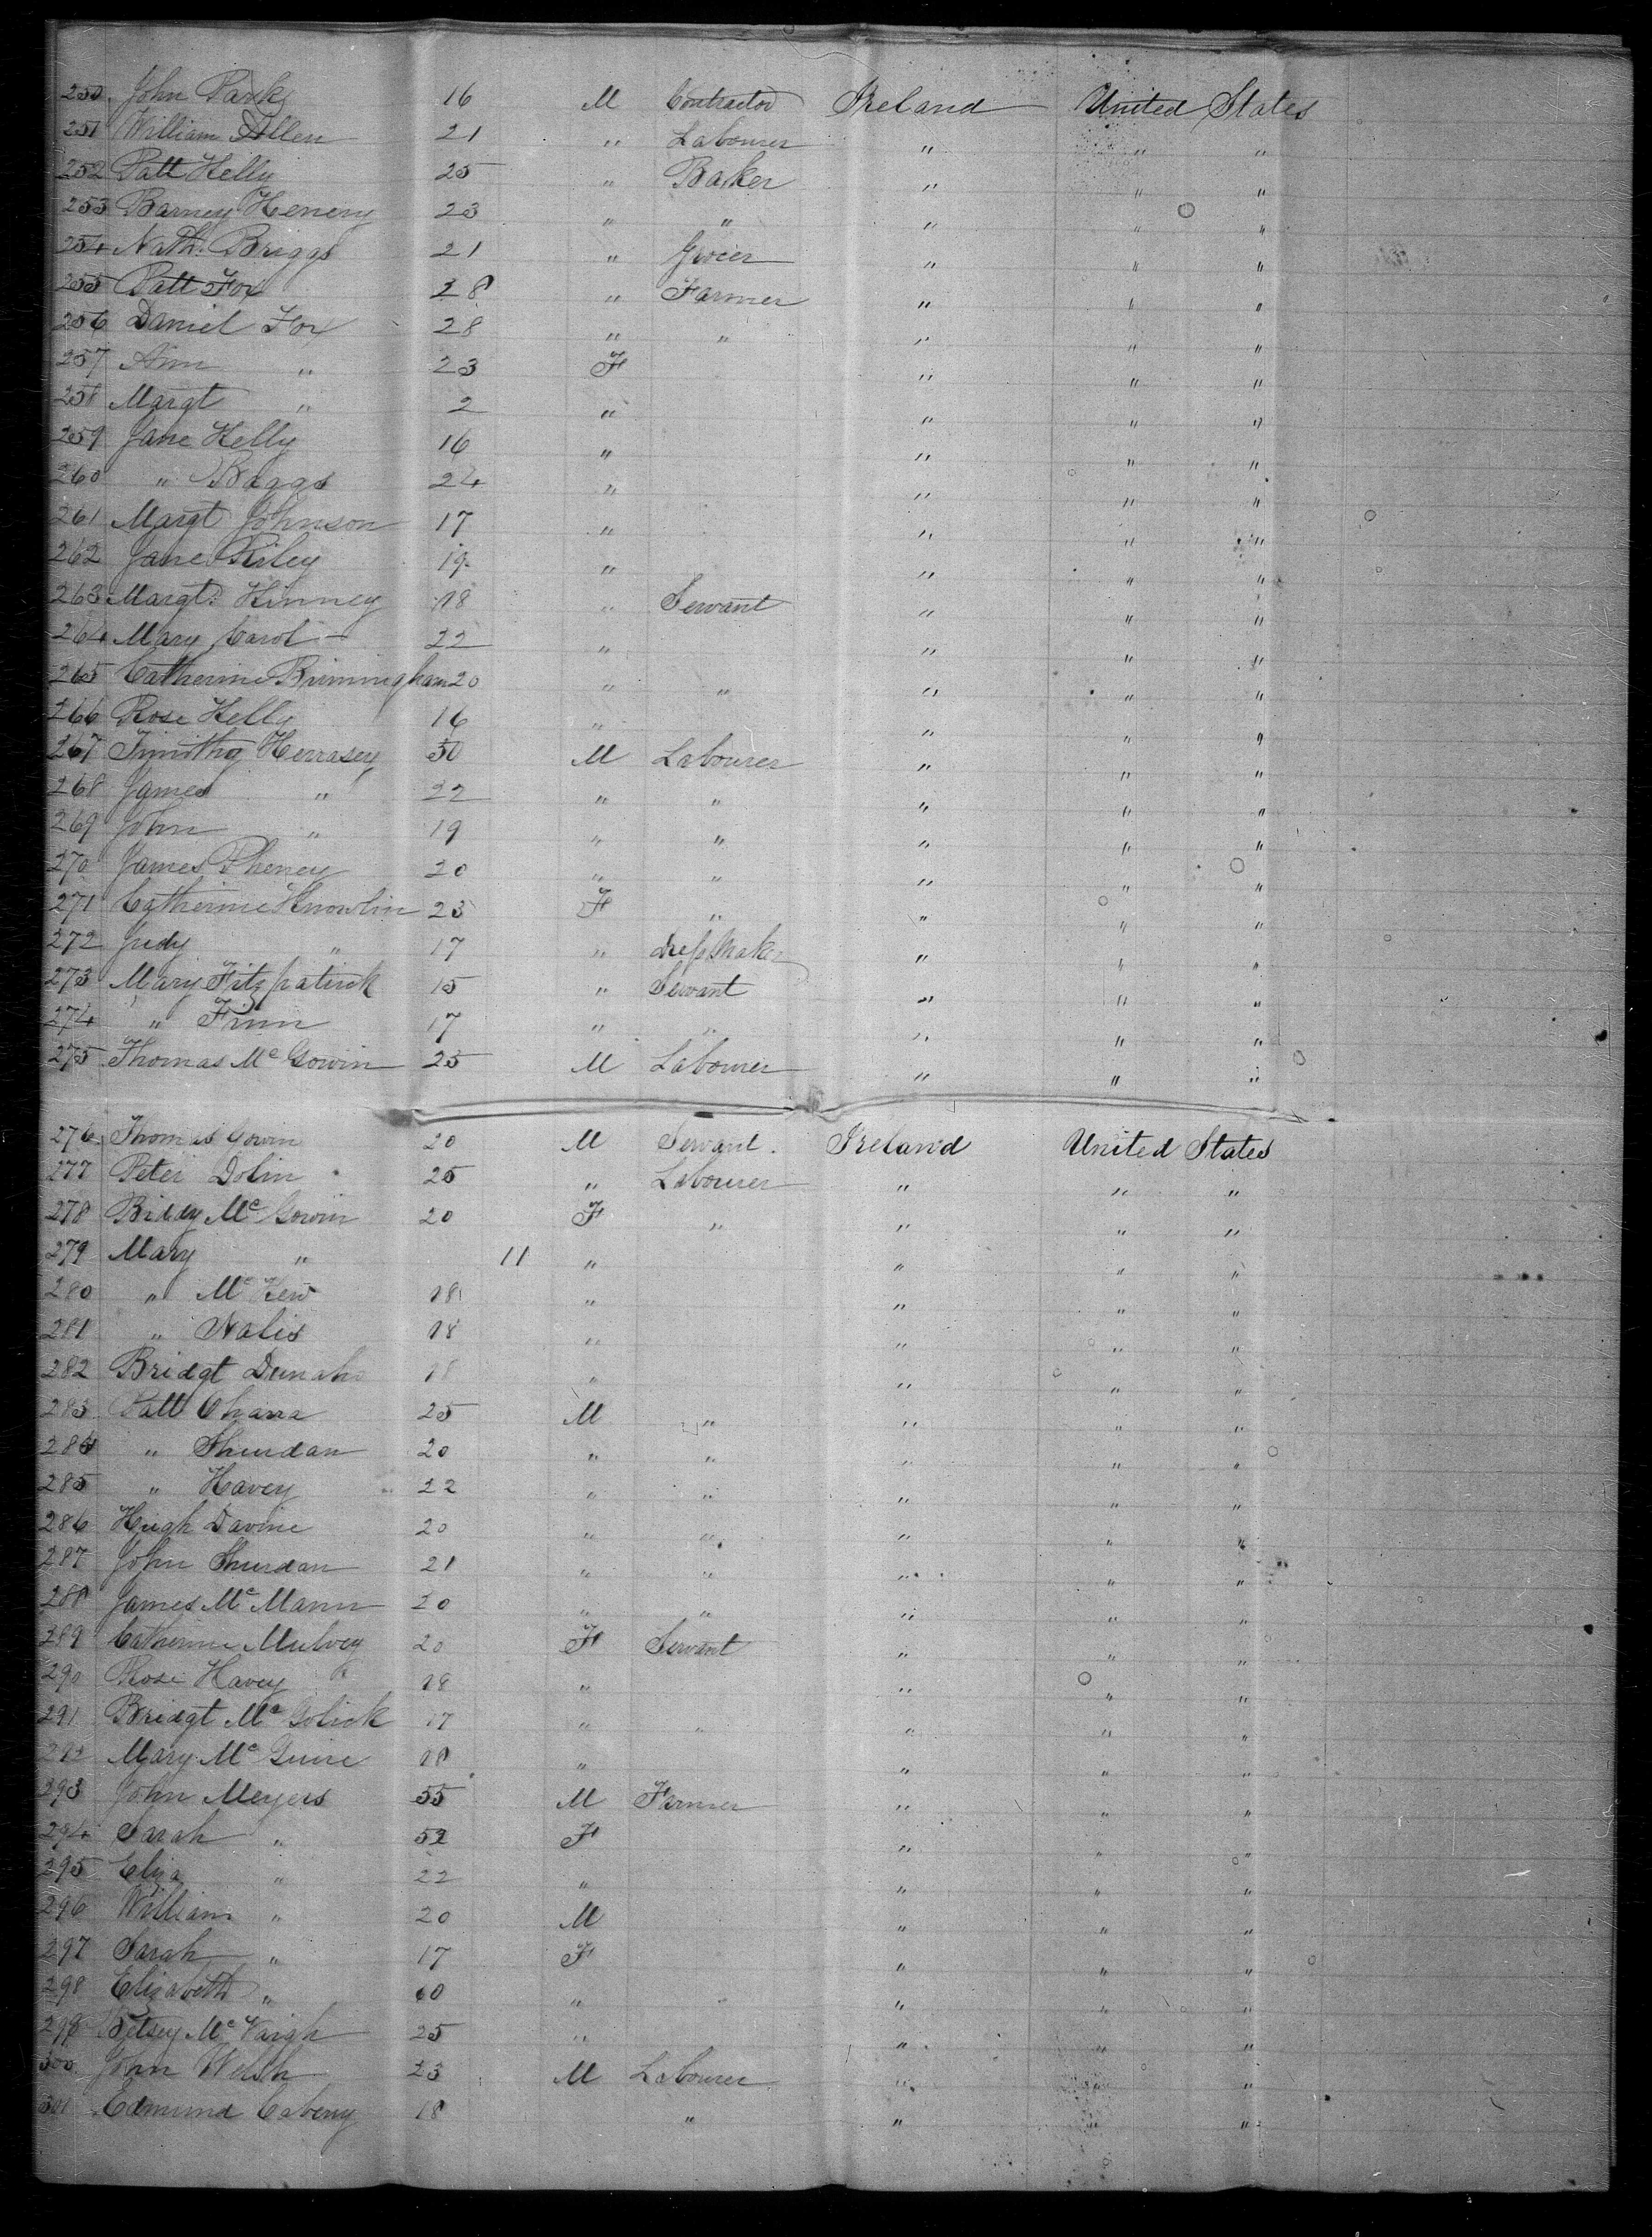 250 John Park 16 M Contractor Ireland United States
251 William Allen 21 " Labourer " " "
252 Patt Kelly 25 " Baker " " "
253 Barney Henery 23 " " " " "
254 Nath. Briggs 21 " Grocer " " "
255 Patt Fox 28 " Farmer " " "
256 Daniel Fox 28 " " " " "
257 Ann " 23 F " " "
258 Margt " 2 " " " "
259 Jane Kelly 16 " " " "
260 " Baggs 24 " " " "
261 Margt Johnson 17 " " " "
262 Jane Riley 19 " " " "
263 Margt. Kinney 18 " Servant " " "
264 Mary Carol 22 " " " "
265 Catherine Brimingham 20 " " " " "
266 Rose Kelly 16 " " " "
267 Timithy Herrasey 50 M Labourer " " "
268 James " 22 " " " " "
269 John " 19 " " " " "
270 James Pheney 20 " " " " "
271 Catherine Knowlin 23 F " " " "
272 Judy " 17 " Dress Maker " " "
273 Mary Fitzpatrick 15 " Servant " " "
274 " Finn 17 " " " " "
275 Thomas Mc Gowin 25 M Labourer " " "
276 Thomas Gowin 20 M Servant Ireland United States
277 Peter Dolin 25 " Labourer " " "
278 Biddy Mc Gowin 20 F " " " "
279 Mary " 11 " " " "
280 " Mc Kew 18 " " " "
281 " Nalis 18 " " " "
282 Bridgt Dunaho 18 " " " "
283 Patt Ohara 25 M " " " "
284 " Shurdan 20 " " " " "
285 " Havey 22 " " " " "
286 Hugh Davine 20 " " " " "
287 John Shurdan 21 " " " " "
288 James Mc Mann 20 " " " " "
289 Catherine Mulvey 20 F Servant " " "
290 Rose Havey 18 " " " "
291 Bridgt Mc Golick 17 " " " " "
292 Mary Mc Guire 18 " " " "
293 John Meyers 55 M Farmer " " "
294 Sarah " 52 F " " "
295 Eliza " 22 " " " "
296 William " 20 M " " "
297 Sarah " 17 F " " "
298 Elizabeth " 60 " " " "
298 Betsey Mc Vaigh 25 " " " "
300 John Welsh 23 M Labourer " " "
301 Edmund Cabeny 18 " " " "